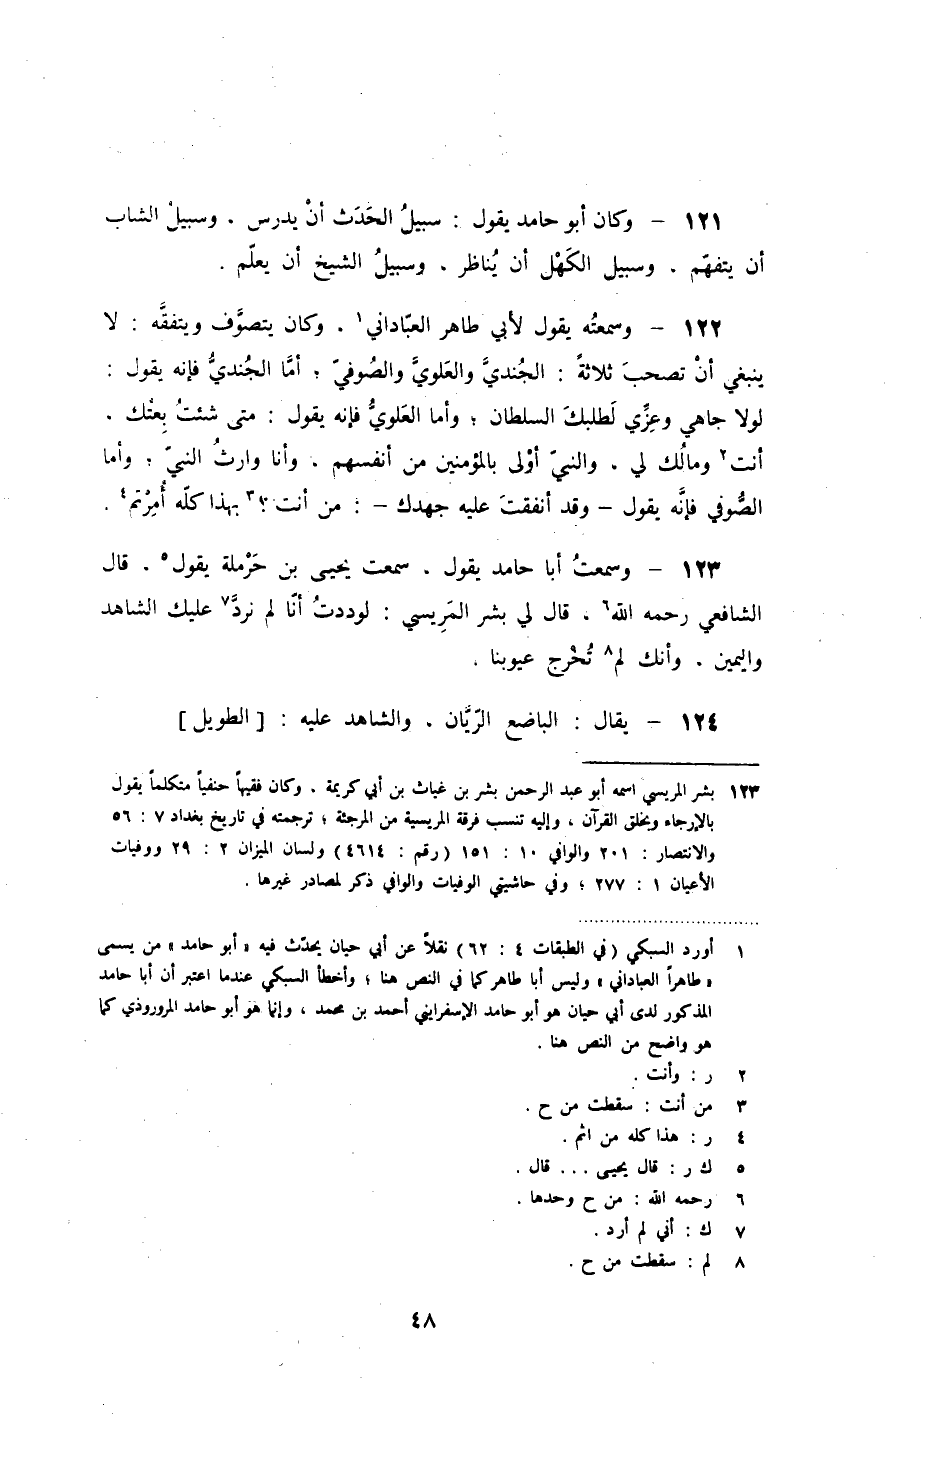 ١٢١ – وكان أبو حامد يقول : سبيلُ الحَدَث أنْ يدرس . وسبيلْ الشاب
أن يتفهّم . وسبيل الكَهْل أن يُناظر . وسبيلُ الشيخ أن يعلّم .
١٢٢ – وسمعتُه يقول لأبي طاهر العبّاداني١ . وكان يتصوَّف ويتفقَّه : لا
ينبغي أنْ تصحبَ ثلاثةً : الجُنديَّ والعَلويَّ والصُوفيّ ؛ أمَّا الجُنديُّ فإنه يقول :
لولا جاهي وعِزِّي لَطلبكَ السلطان ؛ وأما العَلويُّ فإنه يقول : متى شئتُ بِعتْك .
أنت٢ ومالُك لي . والنبيّ أوْلى بالمؤمنين من أنفسهم . وأنا وارثُ النبيّ ؛ وأما
الصُّوفي فإنَّه يقول – وقد أنفقتَ عليه جهدك – : من أنت ؟!٣ بهذا كلّه أُمِرْتم٤ .
١٢٣ – وسمعتُ أبا حامد يقول . سمعت يحيى بن حَرْملة يقول٥ . قال
الشافعي رحمه الله٦ . قال لي بشر المَرِيسي : لوددتُ أنّا لم نردَّ٧ عليك الشاهد
واليمين . وأنك لم٨ تُخْرج عيوبنا .
١٢٤ – يقال : الباضع الرّيَّان . والشاهد عليه : [ الطويل ]
١٢٣ بشر المريسي اسمه أبو عبد الرحمن بشر بن غياث بن أبي كريمة . وكان فقيهاً حنفياً متكلماً يقول
بالإرجاء وبخلق القرآن ، وإليه تنسب فرقة المريسية من المرجئة ؛ ترجمته في تاريخ بغداد ٧ : ٥٦
والانتصار : ٢٠١ والوافي ١٠ : ١٥١ (رقم : ٤٦١٤) ولسان الميزان ٢ : ٢٩ ووفيات
الأعيان ١ : ٢٧٧ ؛ وفي حاشيتي الوفيات والوافي ذكر لمصادر غيرها .
١ أورد السبكي (في الطبقات ٤ : ٦٢) نقلاً عن أبي حيان يحدّث فيه « أبو حامد » من يسمى
« طاهراً العباداني » وليس أبا طاهر كما في النص هنا ؛ وأخطأ السبكي عندما اعتبر أن أبا حامد
المذكور لدى أبي حيان هو أبو حامد الإسفراييني أحمد بن محمد ، وإنما هو أبو حامد المروروذي كما
هو واضح من النص هنا .
٢ ر : وأنت .
٣ من أنت : سقطت من ح .
٤ ر : هذا كله من اثم .
٥ ك ر : قال يحيى ... قال .
٦ رحمه الله : من ح وحدها .
٧ ك : أني لم أرد .
٨ لم : سقطت من ح .
٤٨